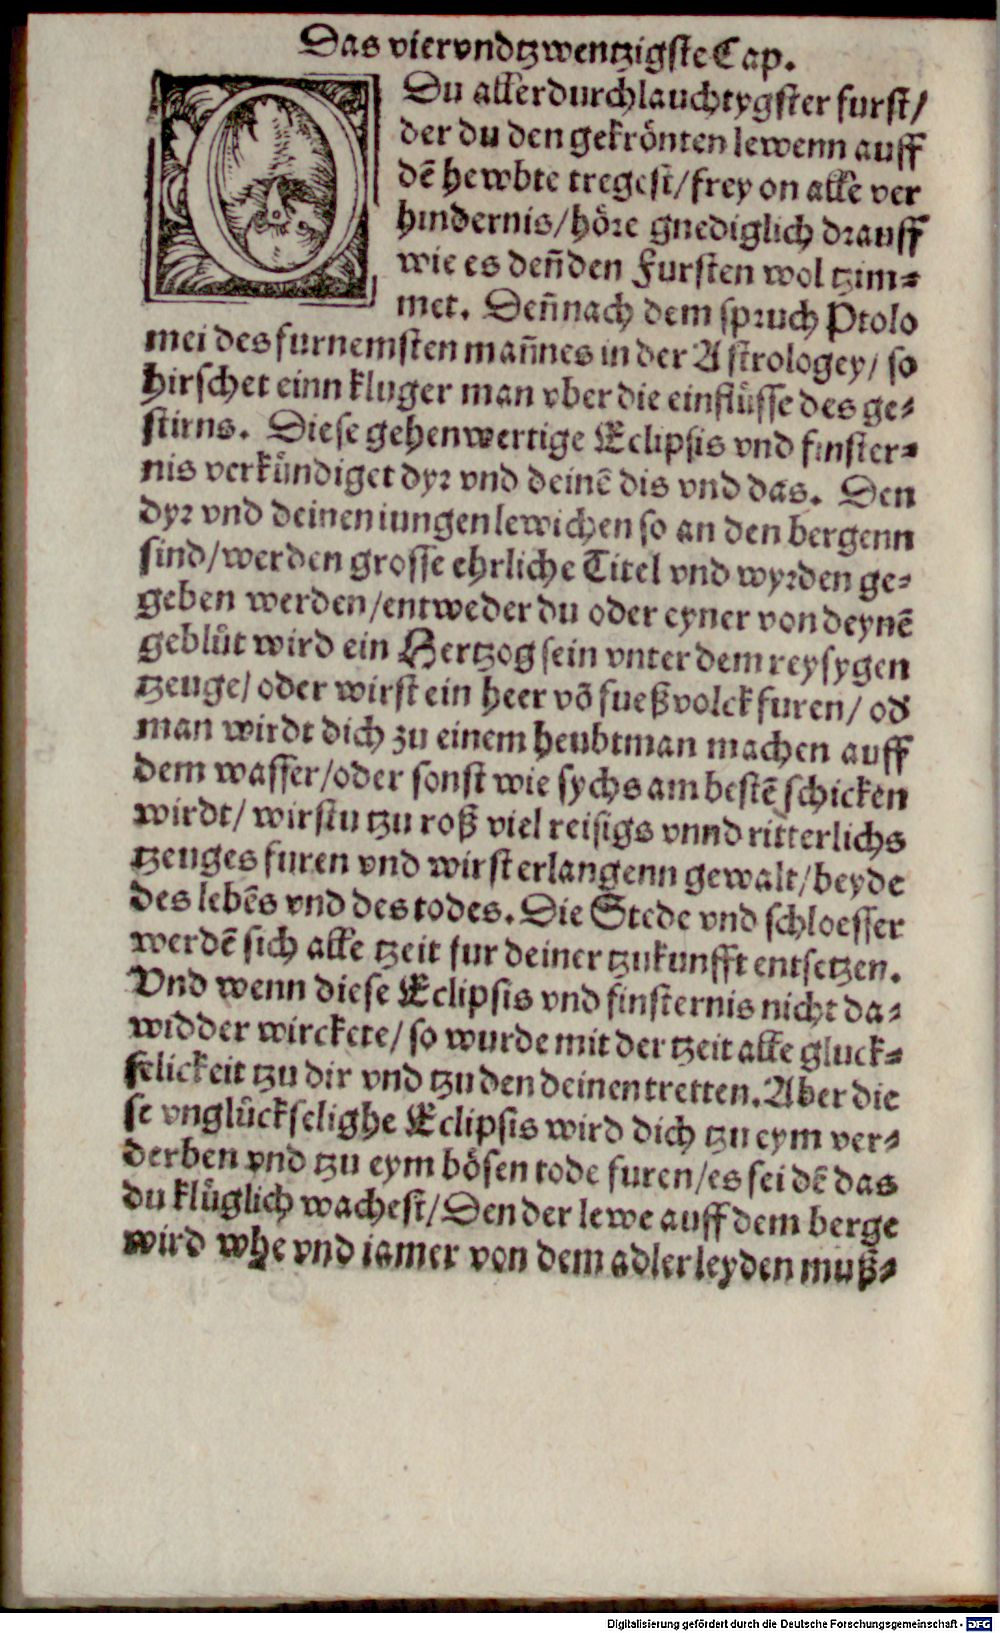 Das viervndtzwentzigste Cap.
O Du allerdurchlauchtygster furst/
der du den gekrönten lewenn auff
dē hewbte tregest/frey on alle ver
hindernis/höre gnediglich drauff
wie es deñ den Fursten wol tzim⸗
met. Deñ nach dem spruch Ptolo
mei des furnemsten mañes in der Astrologey/ so
hirschet einn kluger man vber die einflüsse des ge⸗
stirns. Diese gehenwertige Eclipsis vnd finster⸗
nis verkündiget dyr vnd deinē dis vnd das. Den
dyr vnd deinen iungen lewichen so an den bergenn
sind/werden grosse ehrliche Titel vnd wyrden ge⸗
geben werden/entweder du oder eyner von deynē
geblůt wird ein Hertzog sein vnter dem reysygen
tzeuge/ oder wirst ein heer võ fueß volck furen/ od
man wirdt dich zu einem heubtman machen auff
dem wasser/oder sonst wie sychs am bestē schicken
wirdt/ wirstu tzu roß viel reisigs vnnd ritterlichs
tzeuges furen vnd wirst erlangenn gewalt/beyde
des lebēs vnd des todes. Die Stede vnd schloesser
werdē sich alle tzeit fur deiner tzukunfft entsetzen.
Vnd wenn diese Eclipsis vnd finsternis nicht da⸗
widder wirckete/ so wurde mit der tzeit alle gluck⸗
selickeit tzu dir vnd tzu den deinen tretten. Aber die
se vnglückselighe Eclipsis wird dich tzu eym ver⸗
derben vnd tzu eym bösen tode furen/es sei dē das
du klüglich wachest/Den der lewe auff dem berge
wird whe vnd iamer von dem adler leyden muß⸗
Digitalisierung gefördert durch die Deutsche Forschungsgemeinschaft - DFG